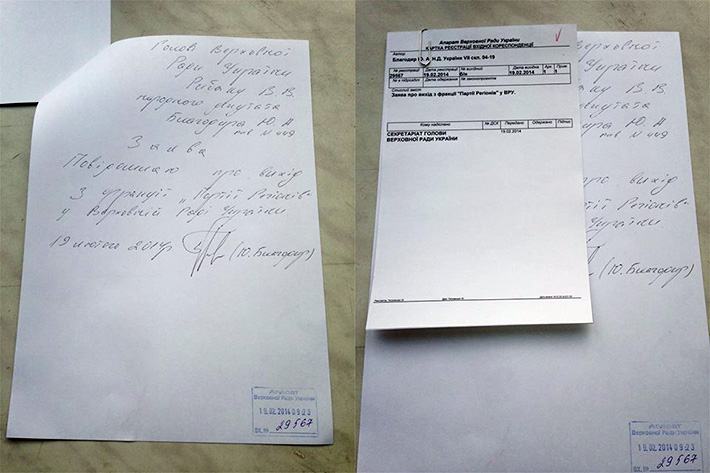 Голові Верховної
Ради України
Рибаку В.В.
народного депутата
Благодира Ю.А.
пос N 449
Заява
Повідомляю про вихід
З фракції „Партії Регіонів"
у Верховній Раді України
19 лютого 2014р. (Ю. Благодир)
Апарат
Верховної Ради України
19.02.2014 09:23
ВХ.№ 29567
Апарат Верховної Ради України
КАРТКА РЕЄСТРАЦІЇ ВХІДНОЇ КОРЕСПОНДЕНЦІЇ
Автор
Благодир Ю. А. Н.Д. України VII скл. 94-19
№ реєстрації Дата реєстрації № вихідний Дата вихідного Арк. Прим
29567 19.02.2014 б/н 19.02.2014 1 1
Стислий зміст
Заява про вихід з фракції "Партії Регіонів" у ВРУ.
Кому надіслано № ДСК Передано Одержано. Підпис
СЕКРЕТАРІАТ ГОЛОВИ 19.02.2014
ВЕРХОВНОЇ РАДИ УКРАЇНИ
N 449
о вихід
ії Регіонів"
України
(Ю. Благодир)
Апарат
Верховної Ради України
19.02.2014 09:23
ВХ.№ 29567